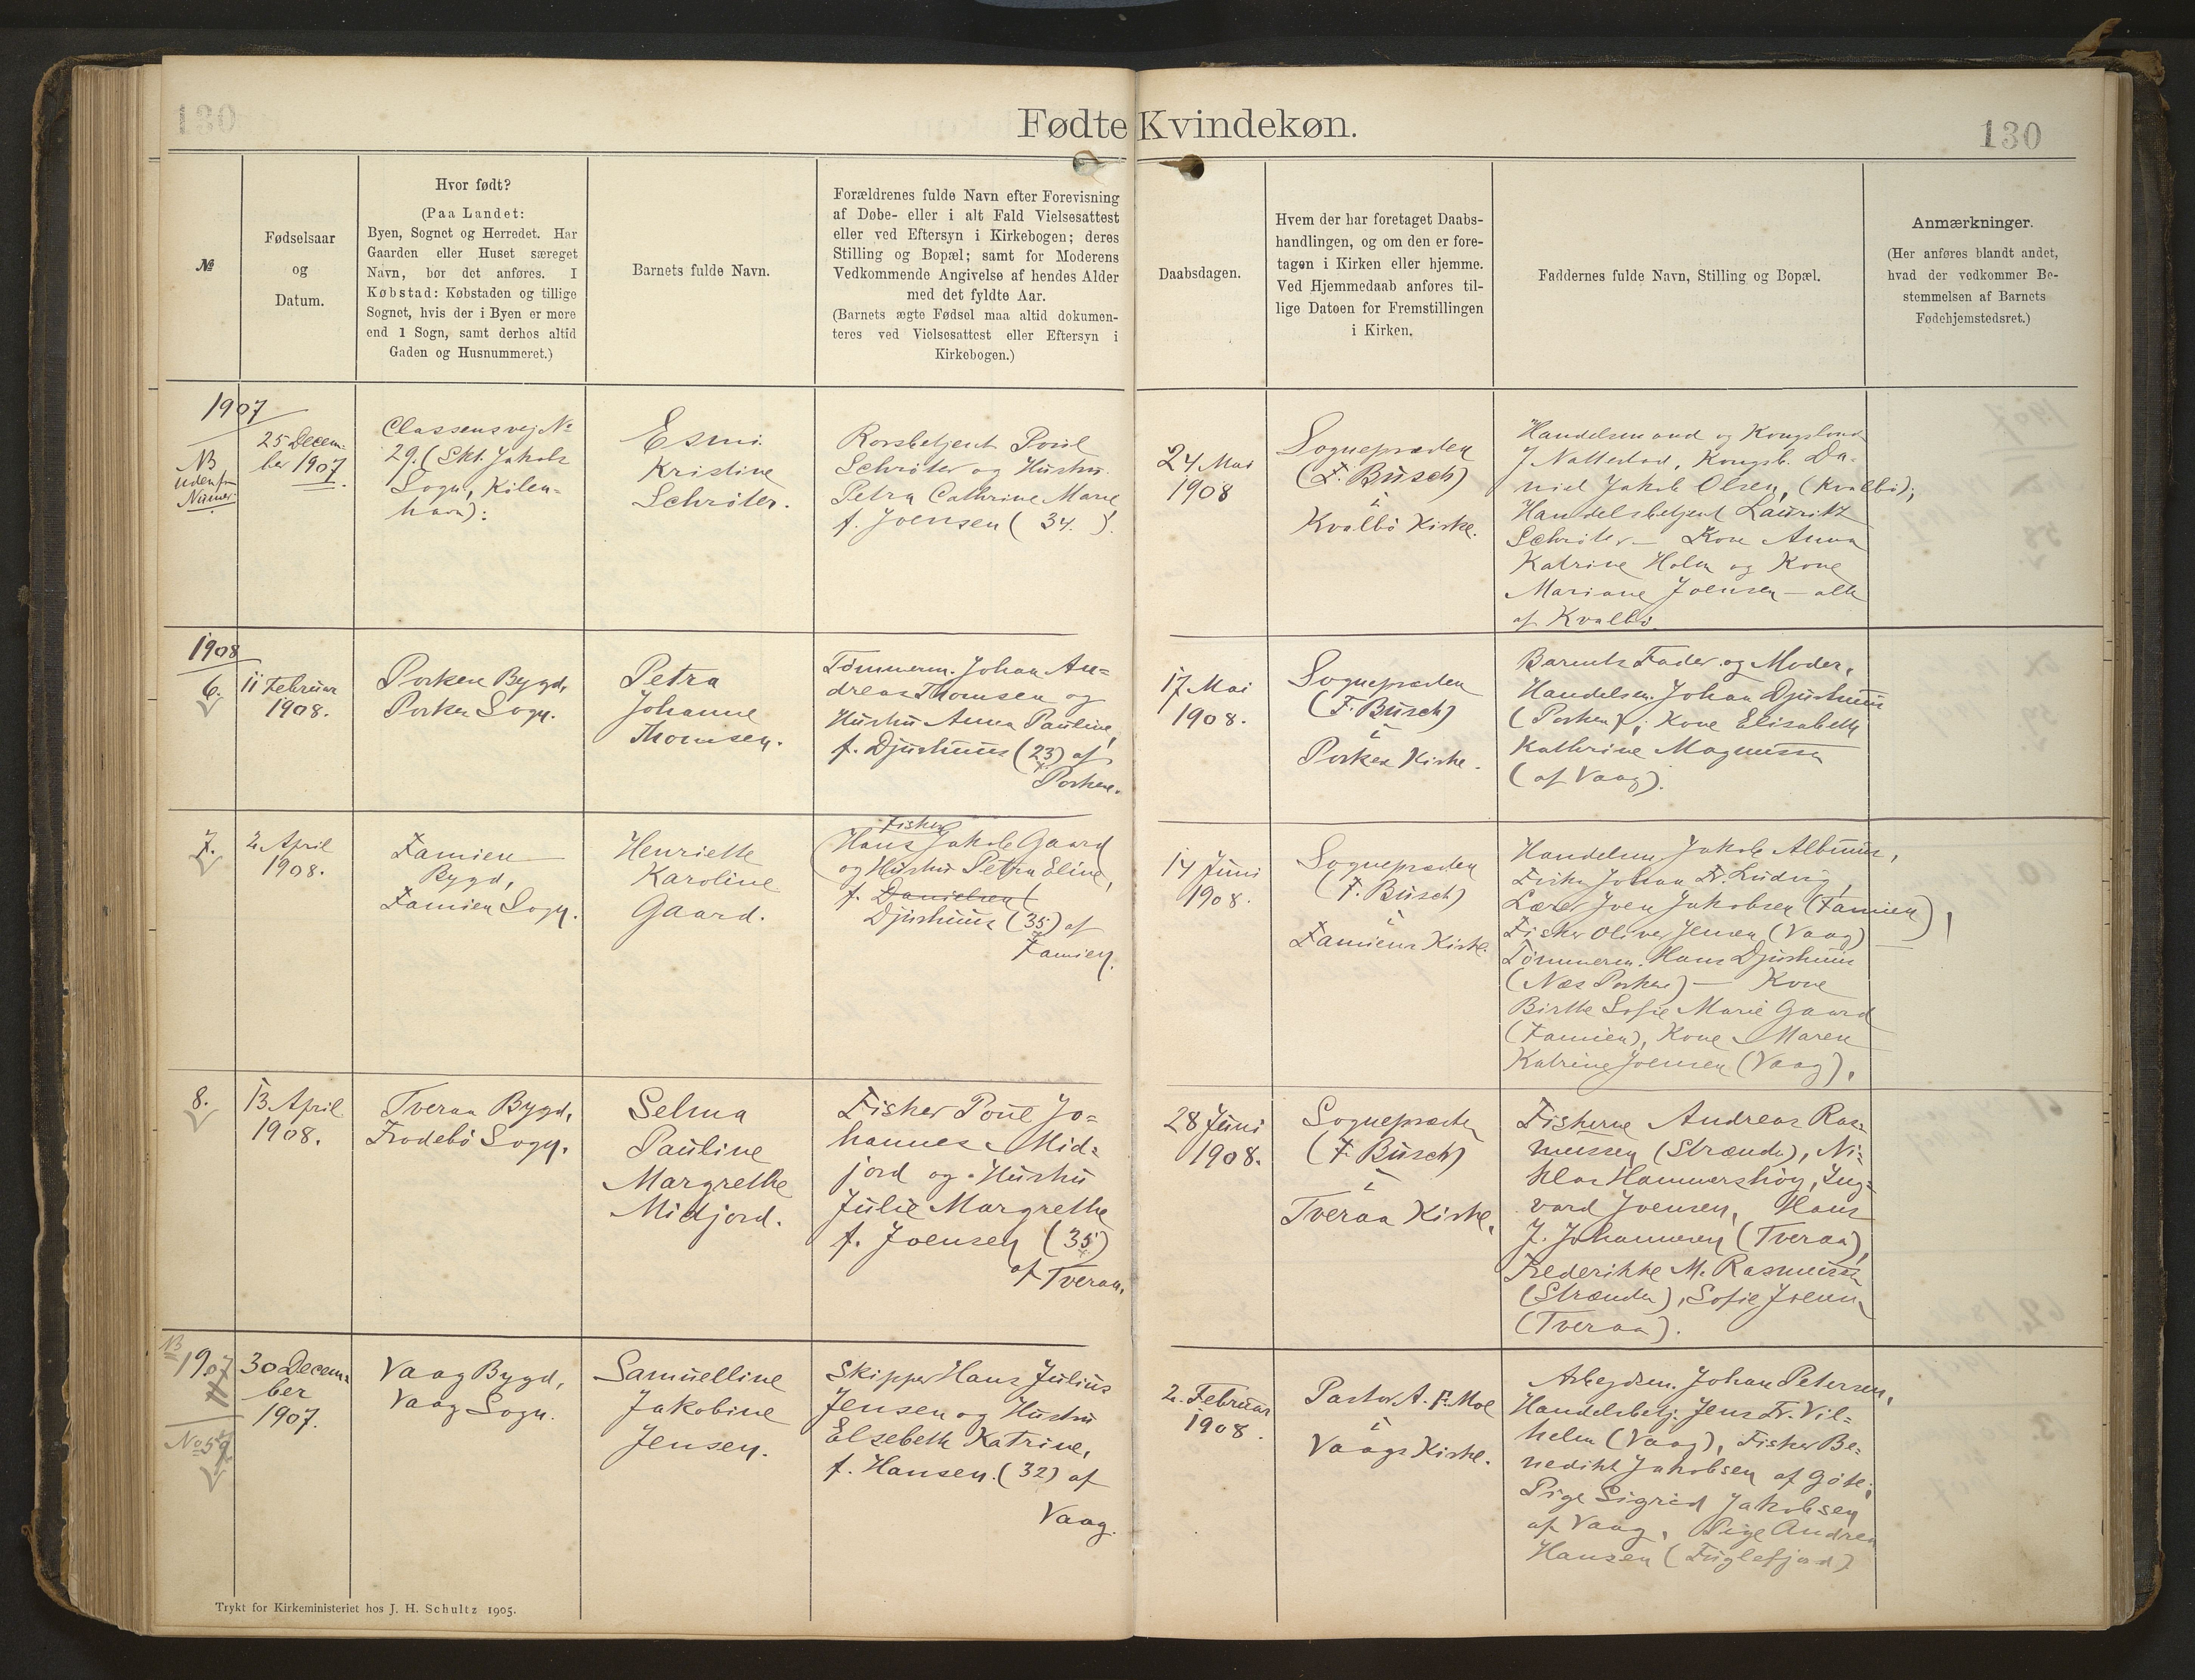 130
Fødte Kvindekøn.
130
№
Fødselsaar
og
Datum.
Hvor født?
(Paa Landet:
Byen, Sognet og Herredet. Har
Gaarden eller Huset særeget
Navn, bør det anføres. I
Købstad: Købstaden og tillige
Sognet, hvis der i Byen er mere
end 1 Sogn, samt derhos altid
Gaden og Husnummeret.)
Barnets fulde Navn.
Forældrenes fulde Navn efter Forevisning
af Døbe- eller i alt Fald Vielsesattest
eller ved Eftersyn i Kirkebogen; deres
Stilling og Bopæl; samt for Moderens
Vedkommende Angivelse af hendes Alder
med det fyldte Aar.
(Barnets ægte Fødsel maa altid dokumen-
teres ved Vielsesattest eller Eftersyn i
Kirkebogen.)
Daabsdagen.
Hvem der har foretaget Daabs-
handlingen, og om den er fore-
tagen i Kirken eller hjemme.
Ved Hjemmedaab anføres til-
lige Datoen for Fremstillingen
i Kirken.
Faddernes fulde Navn, Stilling og Bopæl.
Anmærkninger.
(Her anføres blandt andet,
hvad der vedkommer Be-
stemmelsen af Barnets
Fødehjemstedsret.)
1907
NB
udenfor
Numer
25 Decem-
ber 1907.
Classensvej No
29. (Skt. Jakobs
Sogn, Köben-
havn).
Esmi
Kristine
Schröter.
Poul
Schröter og Hustru
Petra Cathrine Marie
f. Joensen (34.).
24 Mai
1908
Sognepræsten
(F. Busch)
i
Kvalbö Kirke.
Handelsmand og Kongsbond
J Nattestad, Kongsb. Da-
niel Jakob Olsen, (Kvalbö);
Handelsbetjent Lauritz
Schröter — Kone Anna
Katrine Holm og Kone
Mariane Joensen — alle
af Kvalbö.
1908
6.
11 Februar
1908.
Porkere Bygd,
Porkere Sogn.
Petra
Johanne
Thomsen.
Tömmerm. Johan An-
dreas Thomsen og
Hustru Anna Pauline,
f. Djurhuus (23) af
Porkere.
17 Mai
1908.
Sognepræsten
(F. Busch)
i
Porkere Kirke.
Barnets Fader og Moder,
Handelsm. Johan Djurhuus
(Porkere); Kone Elisabeth
Kathrine Magnussen
(af Vaag).
7.
2. April
1908.
Famien
Bygd,
Famien Sogn.
Henriette
Karoline
Gaard.
Fisker
Hans Jakob Gaard
og Hustru Petra Eline,
f. Danielsen (
Djurhuus (35) af
Famien.
14 Juni
1908.
Sognepræsten
(F. Busch)
i
Famiens Kirke.
Handelsm. Jakob Albinus,
Fisker Johan Fr. Ludvig,
Lærer Joen Jakobsen (Famien),
Fisker Oliver Jensen (Vaag)
Tömmerm. Hans Djurhuus
(Næs Porkere) — Kone
Birthe Sofie Marie Gaard
(Famien), Kone Maren
Katrine Joensen (Vaag).
8.
13 April
1908.
Tveraa Bygd,
Frodebö Sogn.
Selma
Pauline
Margrethe
Midjord.
Fisker Poul Jo-
hannes Mid-
jord og Hustru
Julie Margrethe
f. Joensen (35)
af Tveraa.
28 Juni
1908.
Sognepræsten
(F. Busch)
i
Tveraa Kirke.
Fiskerne Andreas Ras-
mussen (Strænder), Ni-
klas Hammershöy, Ing-
vard Joensen, Hans
J. Johannesen (Tveraa),
Frederikke M. Rasmussen
(Strænder), Sofie Joensen
(Tveraa).
NB
1907
No 59
30 Decem-
ber
1907.
Vaag Bygd,
Vaag Sogn.
Samuelline
Jakobine
Jensen.
Skipper Hans Julius
Jensen og Hustru
Elsebeth Katrine,
f. Hansen. (32) af
Vaag.
2. Februar
1908.
Pastor A. F. Moe
i
Vaags Kirke.
Arbejdsm. Johan Petersen,
Handelsbetj. Jens Fr. Vil-
helm (Vaag), Fisker Be-
nedikt Jakobsen af Göte;
Pige Sigrid Jakobsen
af Vaag, Pige Andrea
Hansen (Fuglefjord)
Trykt for Kirkeministeriet hos J. H. Schultz 1905.